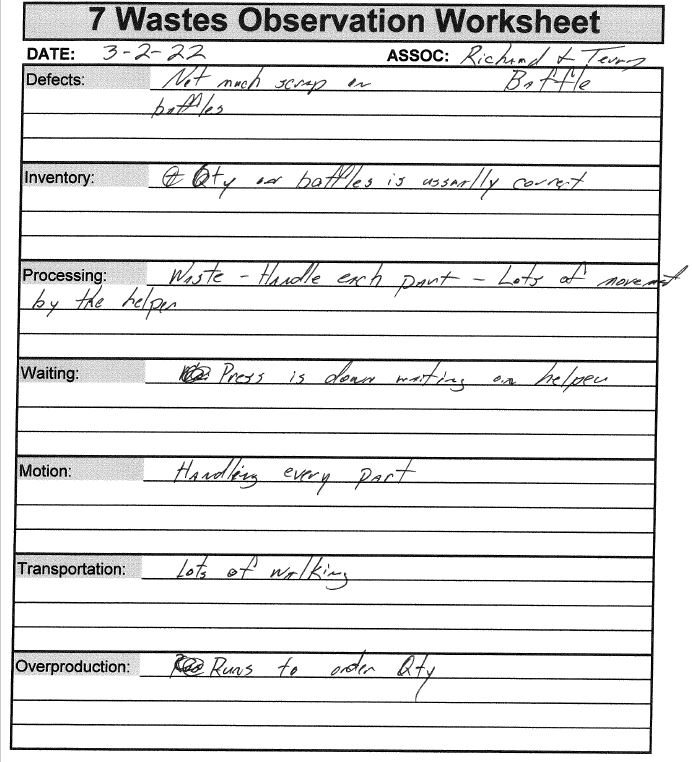 7 Wastes Observation Worksheet
DATE: 3-2-22 ASSOC: Richard & Terry
Defects: Not much scrap on Baffle
baffles
Inventory: Qty on baffles is ussarlly correct
Processing: Waste - Handle each part - Lots of movement
by the helper
Waiting: Press is down waiting on helper
Motion: Handling every part
Transportation: Lots of walking
Overproduction: Runs to order Qty